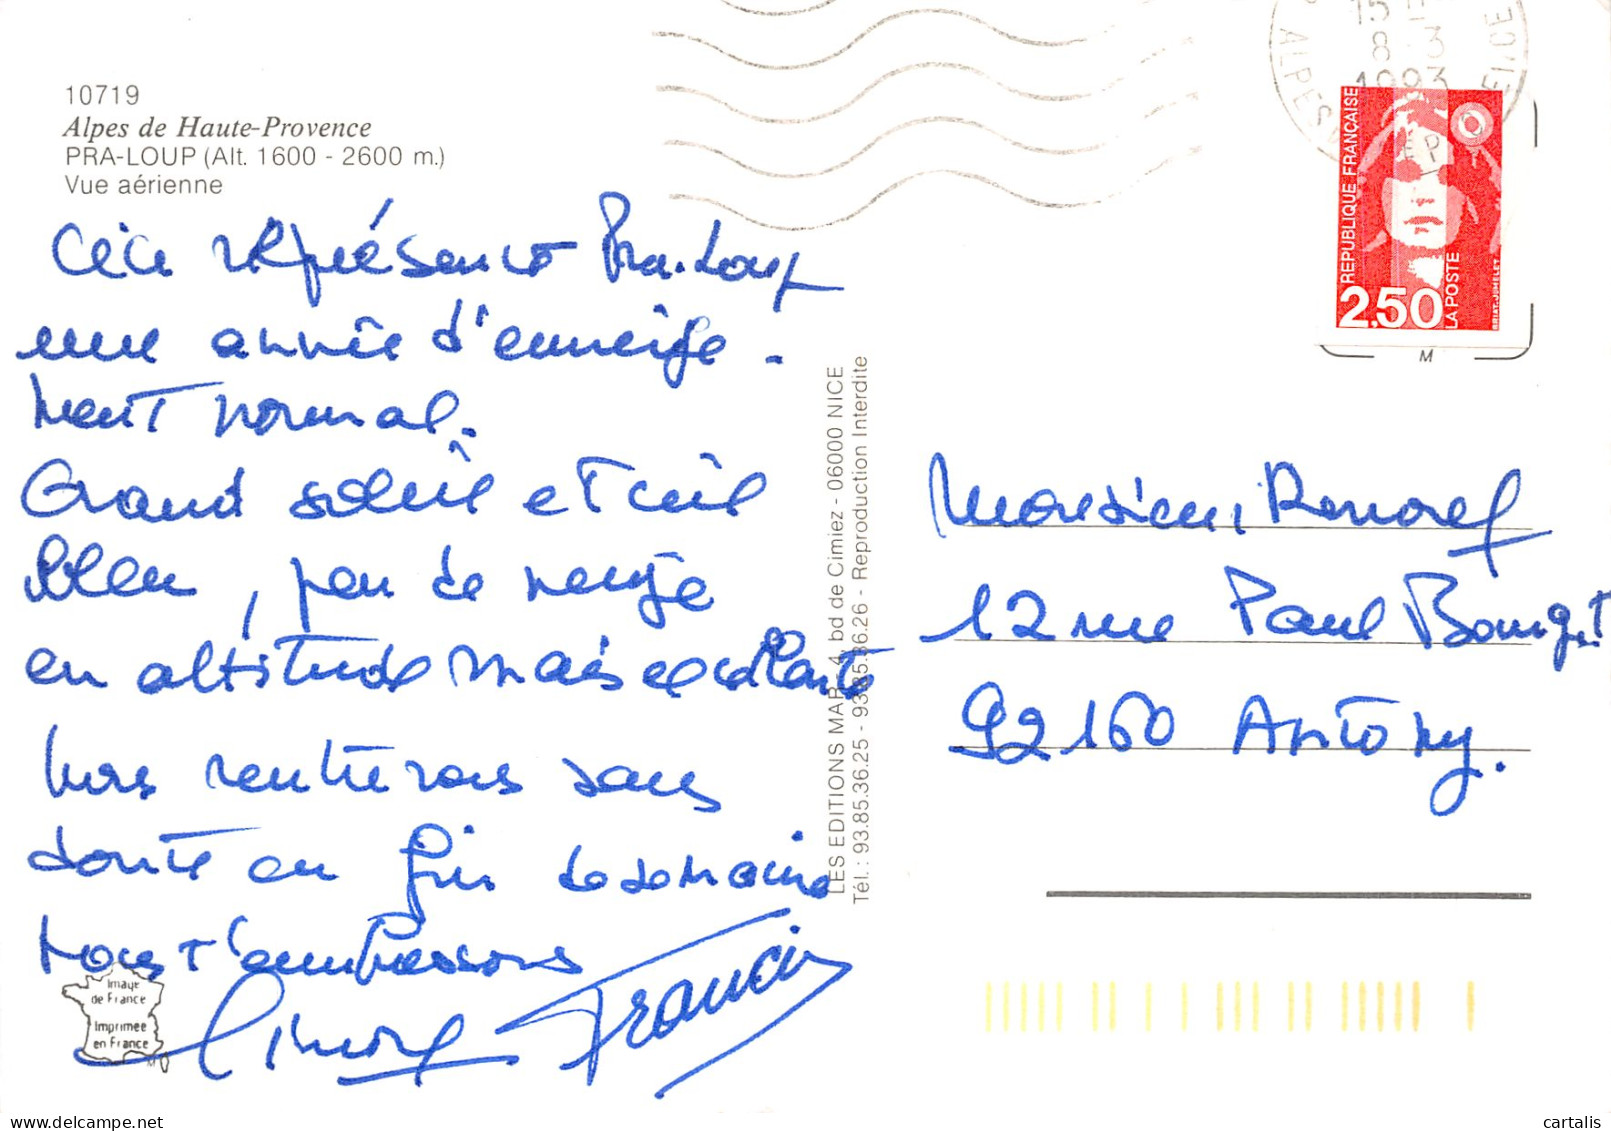 10719
Alpes de Haute-Provence
PRA-LOUP (Alt. 1600 - 2600 m.)
Vue aérienne
Ceci représente Pra-Loup
une année d'enneige-
ment normal.
Grand soleil et ciel
bleu, peu de neige
en altitude mais excellente
Nous rentrerons sans
doute en fin de semaine
Nous t'embrassons
Simone Francis
Image
de France
Imprimée
en France
LES EDITIONS MAR - 4, bd de Cimiez - 06000 NICE
Tél. : 93.85.36.25 - 93.85.36.26 - Reproduction Interdite
8 3
1993
ALPES
REPUBLIQUE FRANÇAISE
2,50
LA POSTE
BRIAT-JUMELET
M
Monsieur
12 rue Paul Bourget
92160 Antony.
cartalis